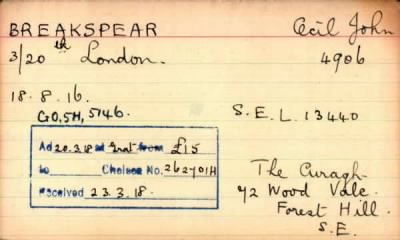 BREAKSPEAR Cecil John
3/20th London. 4906
18.8.16.
GO,5H,5146. S.E.L. 13440
Ad 20.3.18 at Grat from £15
to Chelsea No. 262701H
Received 23.3.18.
The Curagh
72 Wood Vale.
Forest Hill.
S.E.